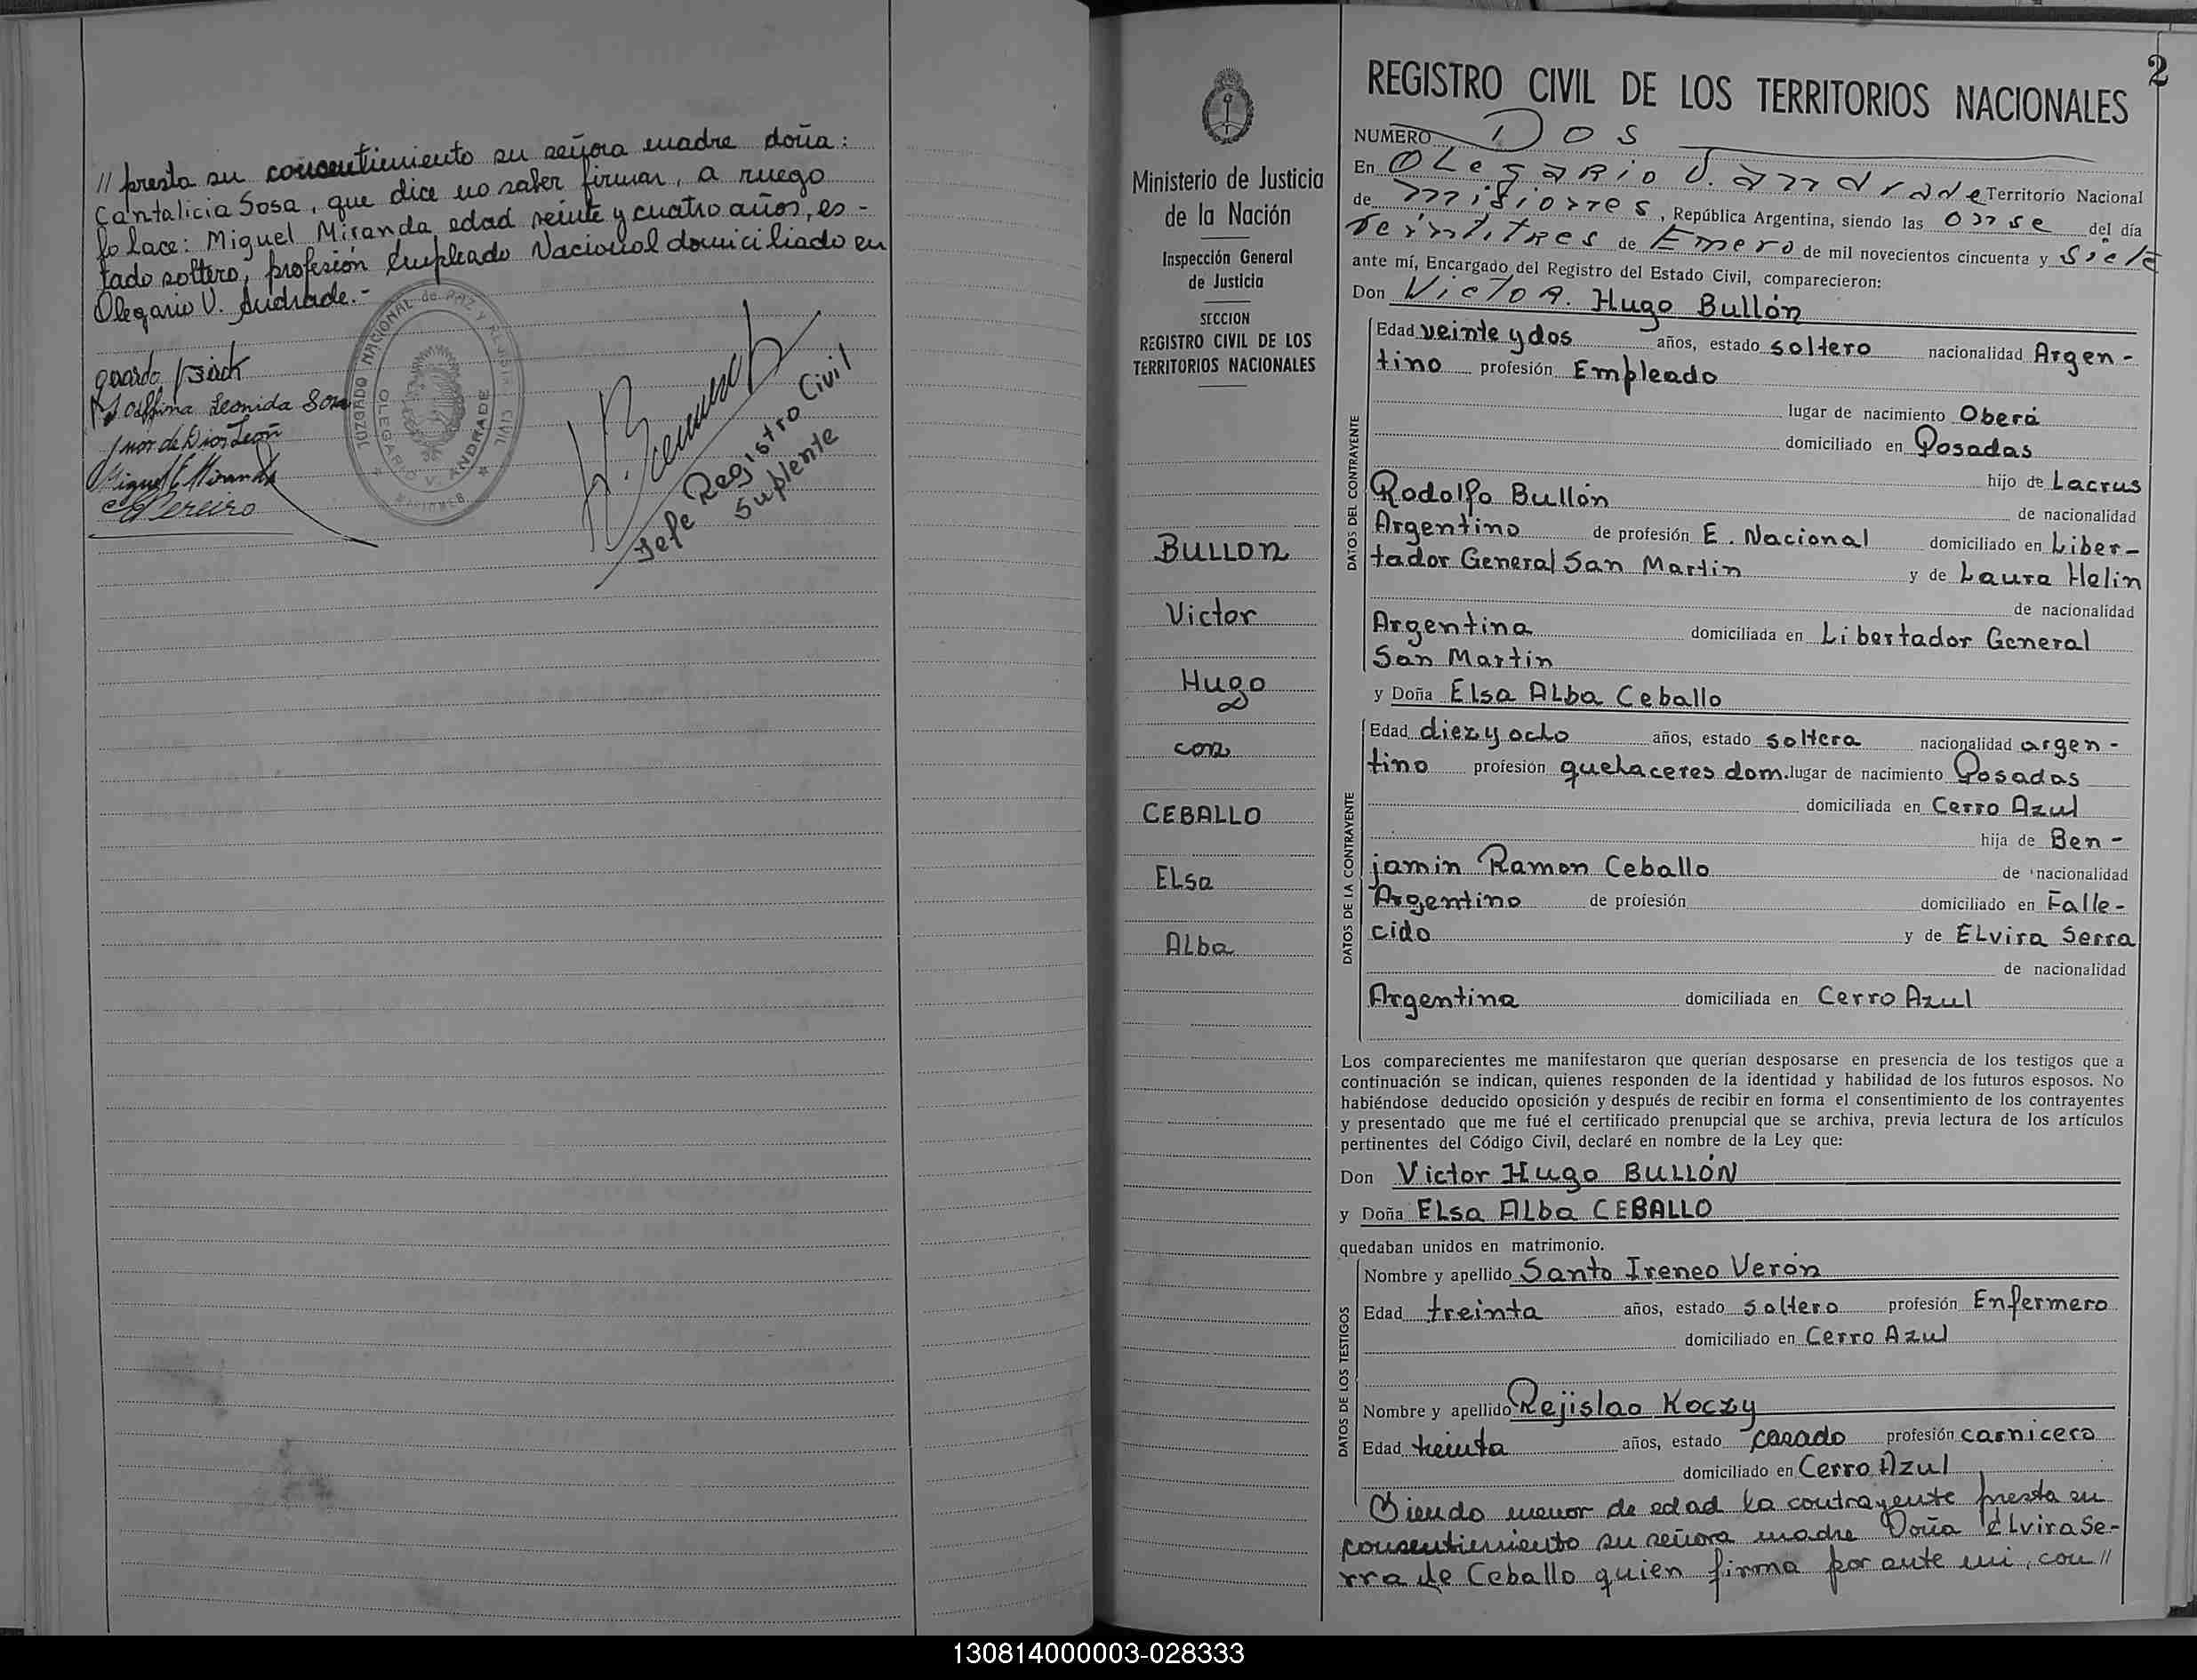 // presta su consentimiento su señora madre doña:
Cantalicia Sosa, que dice no saber firmar, a ruego
lo hace: Miguel Miranda edad veinte y cuatro años, es-
tado soltero, profesión Empleado Nacional domiciliado en
Olegario V. Andrade.-
Leonida Sosa
Juan de Dios León
Miguel E Miranda
Pereiro
JUZGADO NACIONAL de PAZ Y REGISTRO CIVIL
OLEGARIO V. ANDRADE
MISIONES
Jefe Registro Civil
Suplente
2
Ministerio de Justicia
de la Nación
Inspección General
de Justicia
SECCION
REGISTRO CIVIL DE LOS
TERRITORIOS NACIONALES
BULLON
Victor
Hugo
con
CEBALLO
ELsa
Alba
REGISTRO CIVIL DE LOS TERRITORIOS NACIONALES
NUMERO Dos
En OLegaRio V. andrade Territorio Nacional
de misiones, República Argentina, siendo las onse del día
veintitres de Enero de mil novecientos cincuenta y Siete
ante mí, Encargado del Registro del Estado Civil, comparecieron:
Don Victor. Hugo Bullón
DATOS DEL CONTRAYENTE
Edad veinte y dos años, estado soltero nacionalidad Argen-
tino profesión Empleado
lugar de nacimiento Oberá
domiciliado en Posadas
hijo de Lacrus
Rodolfo Bullón de nacionalidad
Argentino de profesión E. Nacional domiciliado en Liber-
tador General San Martin y de Laura Helin
de nacionalidad
Argentina domiciliada en Libertador General
San Martin
y Doña ELsa ALba Ceballo
DATOS DE LA CONTRAYENTE
Edad diez y ocho años, estado soltera nacionalidad argen-
tino profesión quehaceres dom. lugar de nacimiento Posadas
domiciliada en Cerro Azul
hija de Ben-
jamin Ramon Ceballo de nacionalidad
Argentino de profesión domiciliado en Falle-
cido y de ELvira Serra
de nacionalidad
Argentina domiciliada en Cerro Azul
Los comparecientes me manifestaron que querían desposarse en presencia de los testigos que a
continuación se indican, quienes responden de la identidad y habilidad de los futuros esposos. No
habiéndose deducido oposición y después de recibir en forma el consentimiento de los contrayentes
y presentado que me fué el certificado prenupcial que se archiva, previa lectura de los artículos
pertinentes del Código Civil, declaré en nombre de la Ley que:
Don Victor Hugo BULLÓN
y Doña ELsa ALba CEBALLO
quedaban unidos en matrimonio.
DATOS DE LOS TESTIGOS
Nombre y apellido Santo Ireneo Verón
Edad treinta años, estado soltero profesión Enfermero
domiciliado en Cerro Azul
Nombre y apellido Rejislao Koczy
Edad treinta años, estado casado profesión carnicero
domiciliado en Cerro Azul
Siendo menor de edad la contrayente presta su
consentimiento su señora madre Doña ELvira Se-
rra de Ceballo quien firma por ante mi, con //
130814000003-028333